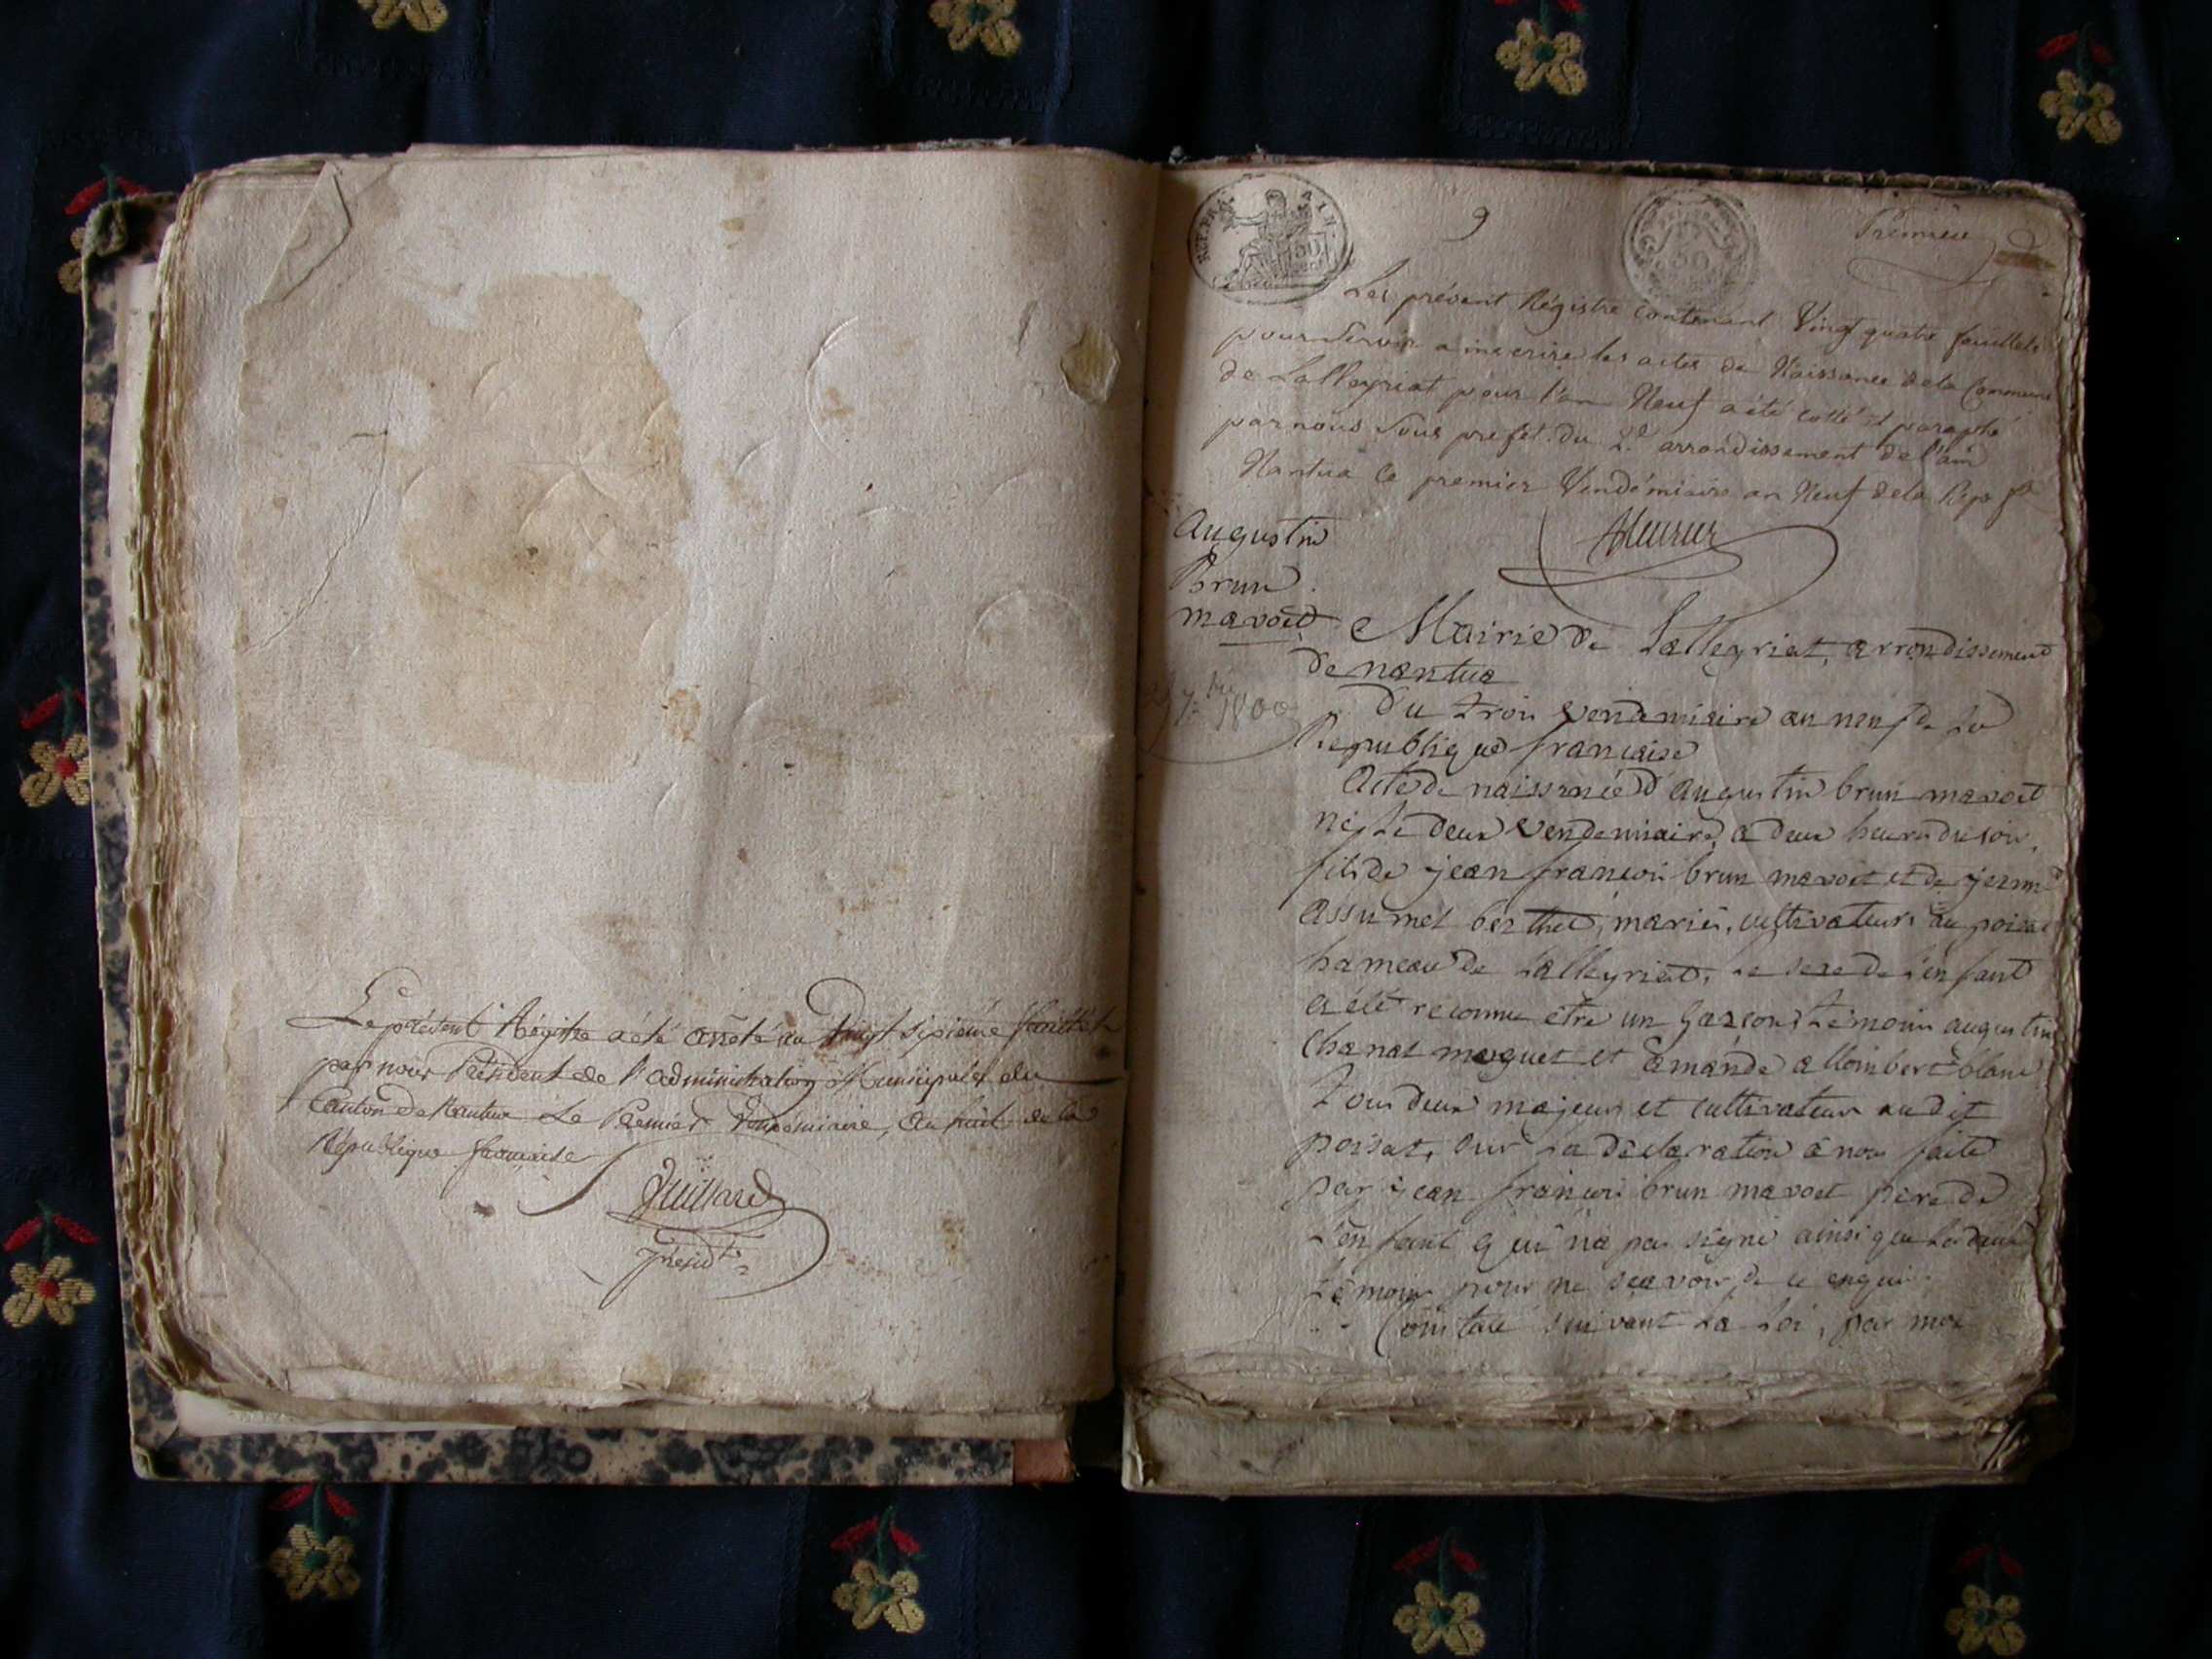 Le présent Régistre a été arrêté au vingt sixième feuillet
par nous Président de l'administration Municipale du
Canton de Nantua Le Premier Vendémiaire, an huit de la
République française
Juillard
présidt
REP. FRA. AIN.
9
Première
Les présent Régistre contenant Vingt quatre feuillets
pour Servir a inscrire les actes de Naissance de la Commune
de Lalleyriat pour l'an Neuf a été cotté et paraphé
par nous Sous prefet du 2e arrondissement de l'ain
Nantua le premier Vendémiaire an Neuf de la Rép. fse
augustin
Brun
mavoet
7bre 1800
Mairie de Lalleyriat, arrondissement
de nantua
Du trois vendemiaire an neuf de la
Republique francaise
Acte de naissance d'augustin brun mavoet
né le deux vendemiaire, a deux heure du soir,
fils de jean francois brun mavoet et de jeanne
assumel berthet, mariés, cultivateurs au poisat
hameau de Lalleyriat, le sexe de l'enfant
a été reconnu etre un garcon, témoins augustin
Chanas moguet et amande alloimbert blanc
tous deux majeurs et cultivateurs audit
poisat, sur la declaration a nous faite
par jean francois brun mavoet pere de
l'enfant qui na pas signé ainsi que les deux
témoins pour ne scavoir, de ce enquis
Constaté suivant la loi, par moi